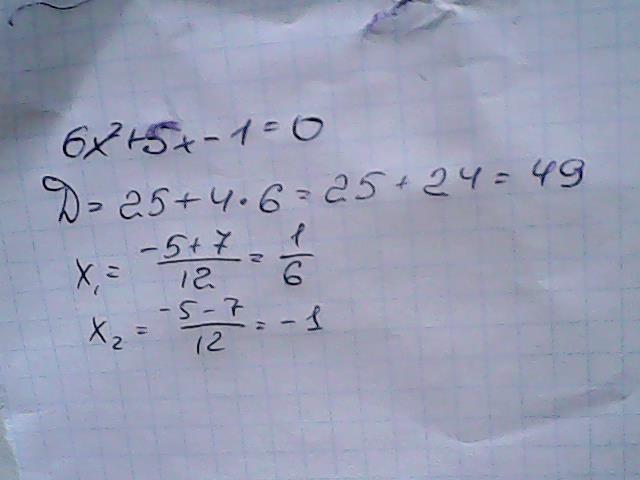 6x²+5x-1=0
D=25+4·6=25+24=49
x₁=(-5+7)/12=1/6
x₂=(-5-7)/12=-1